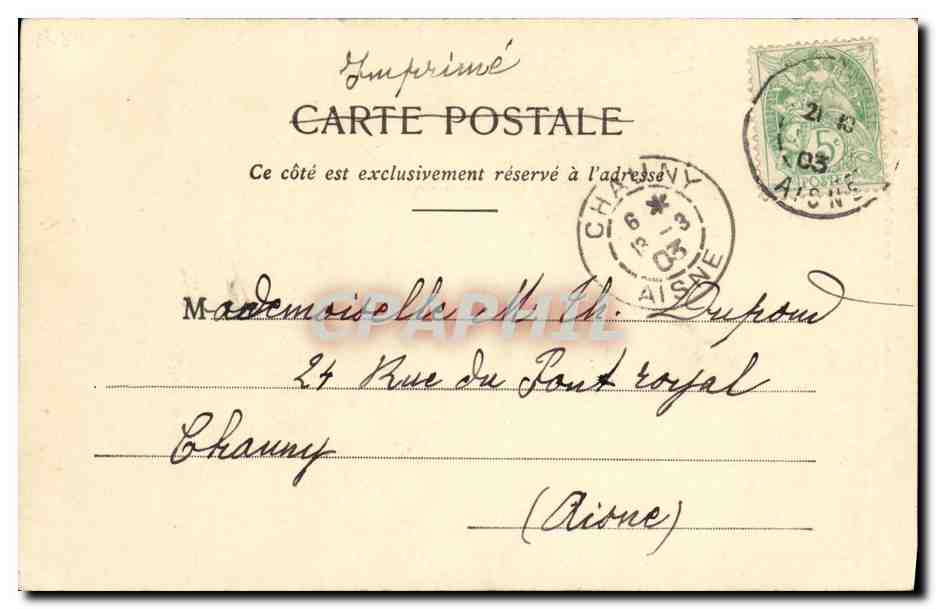 Imprimé
CARTE POSTALE
Ce côté est exclusivement réservé à l'adresse
CHAUNY
6 * - 3
03
AISNE
21
03
AISNE
5c
POSTES
Mademoiselle M. Th. Dupond
24 Rue du Pont royal
Chauny
(Aisne)
CPAPHIL